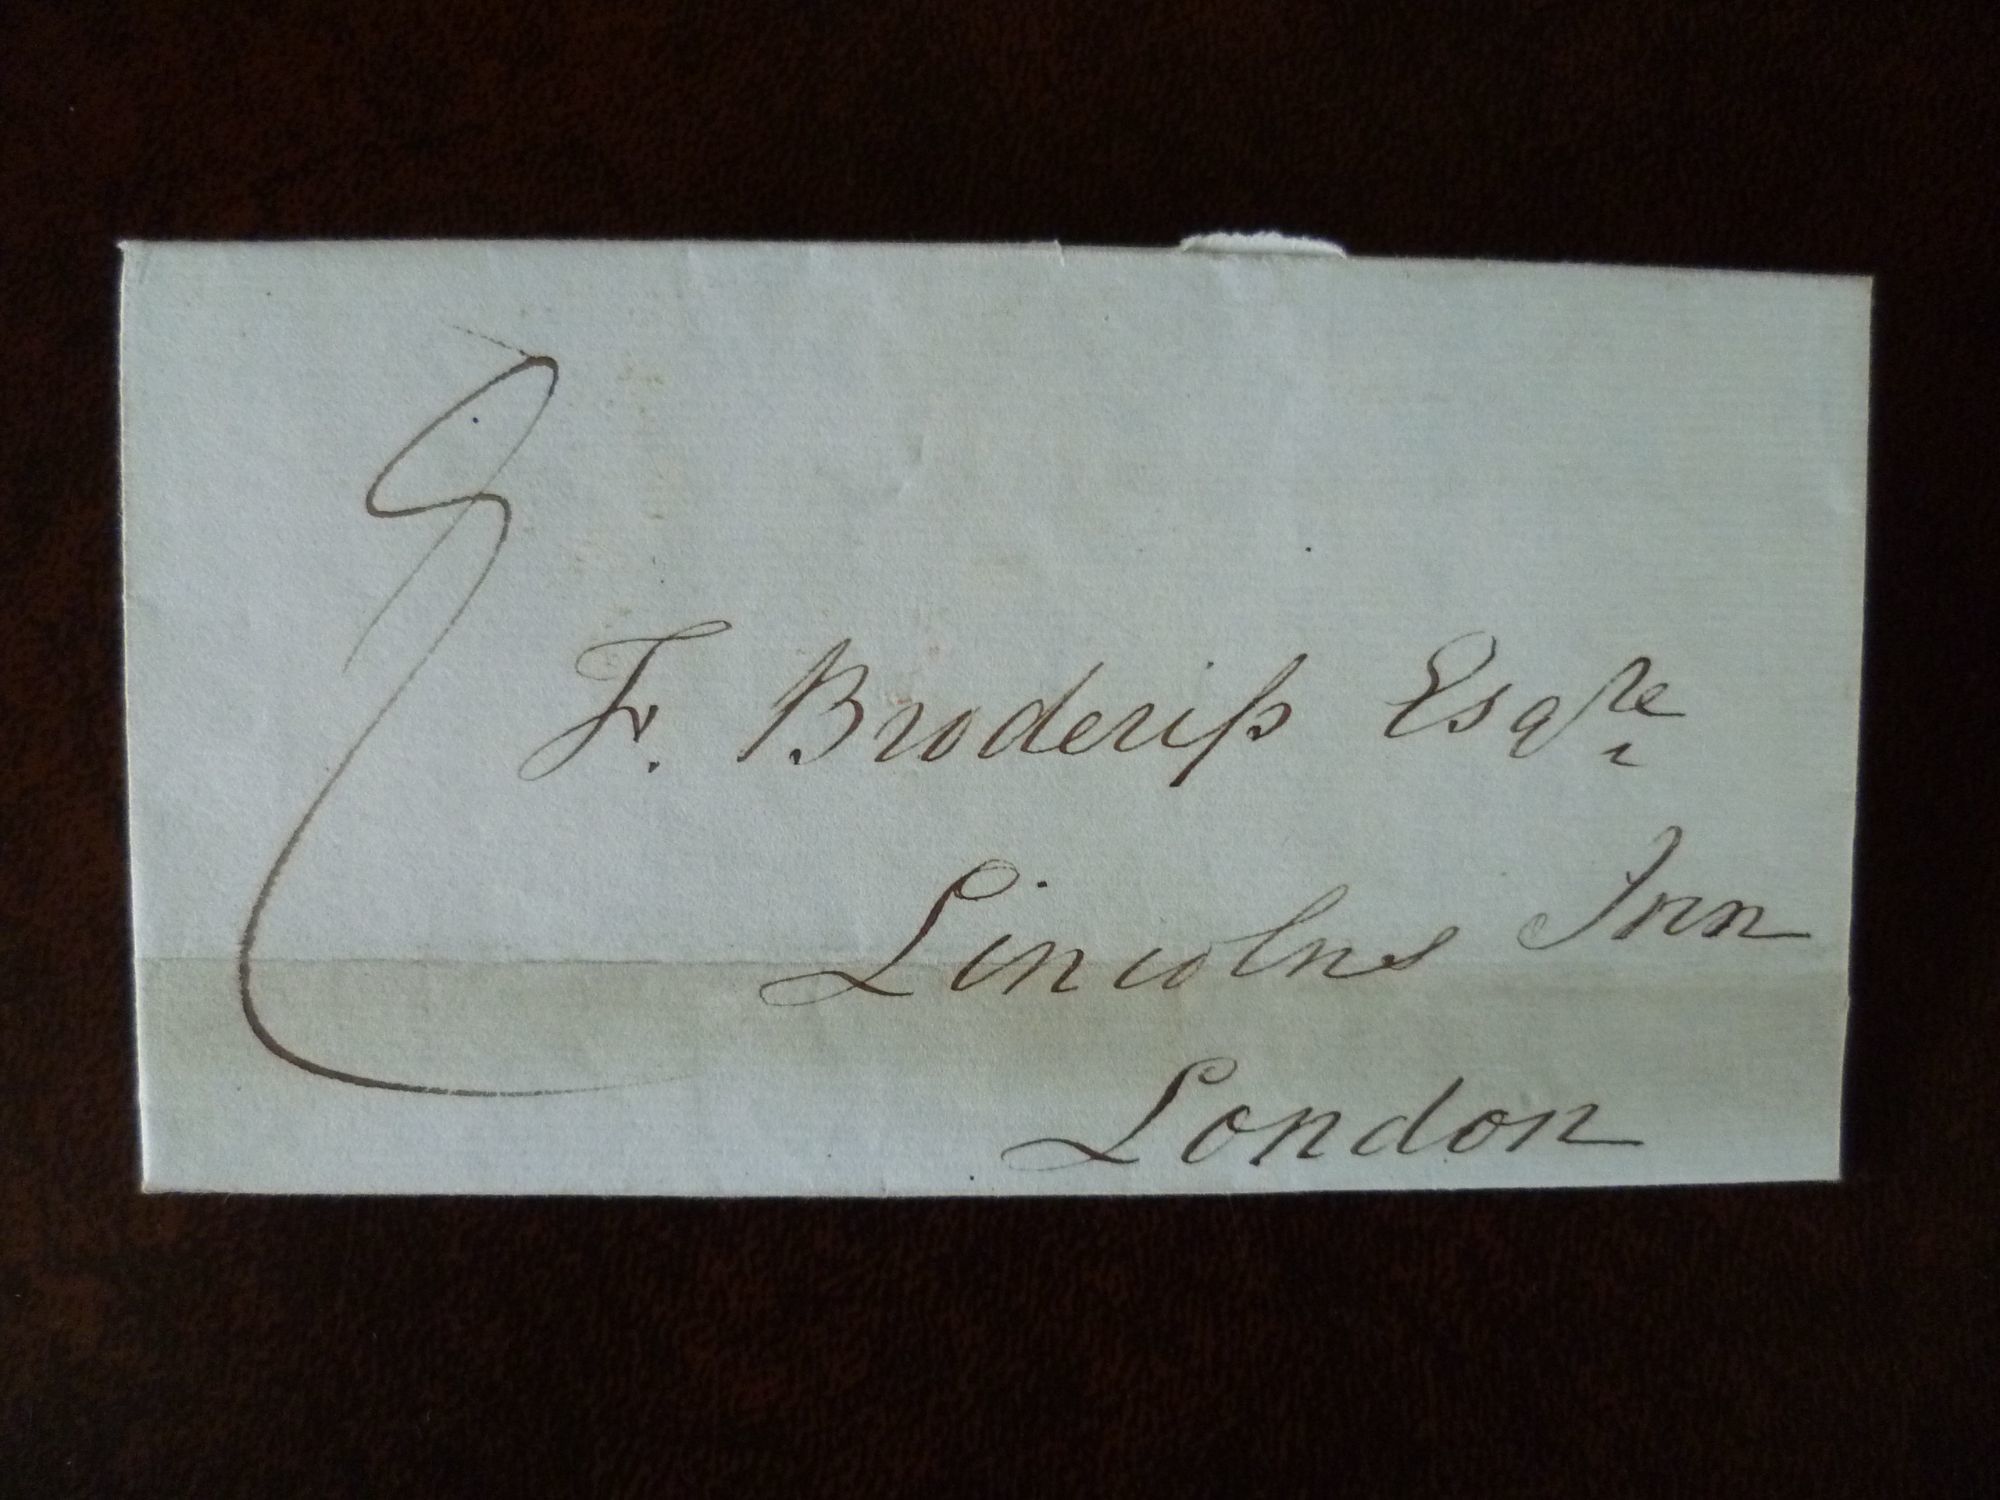 Fr. Broderiſs Esqre
Lincolns Inn
London